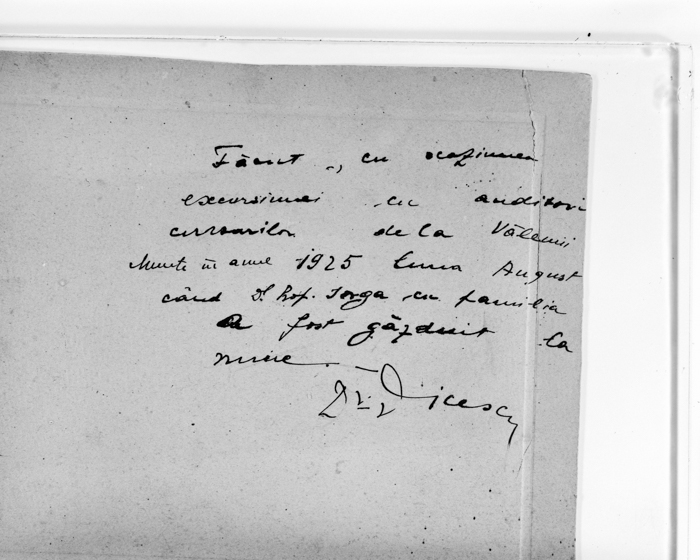 Făcut, cu ocaziunea
excursiunei cu auditori
cursurilor de la Vălenii
Munte în anul 1925 luna August
când Dl. Prof. Iorga cu familia
a fost găzduit la
mine. —